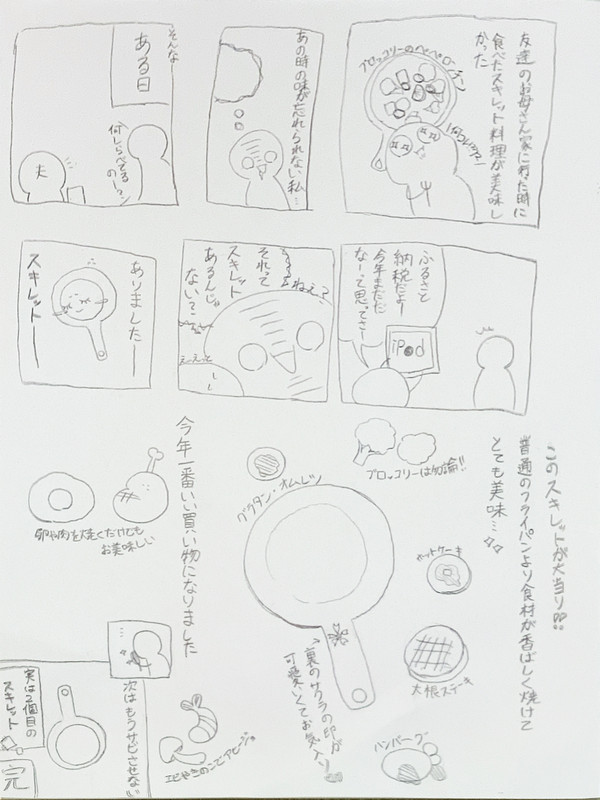 友達のお母さん家に行った時に
食べたスキレット料理が美味し
かった
ブロッコリーのペペロンチーノ
あの時の味が忘れられない私…
そんな
ある日
何しらべてる
のー?
夫
ふるさと
納税だよー
今年まだだ
なーって思ってさー
iPod
ねえ?
それって
スキレット
あるんじゃ
ない?
えーえっと
ありましたー
スキレットー
このスキレットが大当り!!
普通のフライパンより食材が香ばしく焼けて
とても美味…
ブロッコリーは勿論!!
グラタン・オムレツ
ホットケーキ
大根ステーキ
ハンバーグ
→裏のサクラの印が
可愛いくてお気入り
エビやきのこでアヒージョ
今年一番いい買い物になりました
卵や肉を焼くだけでも
お美味しい
次はもうサビさせない
実は2個目の
スキレット
完